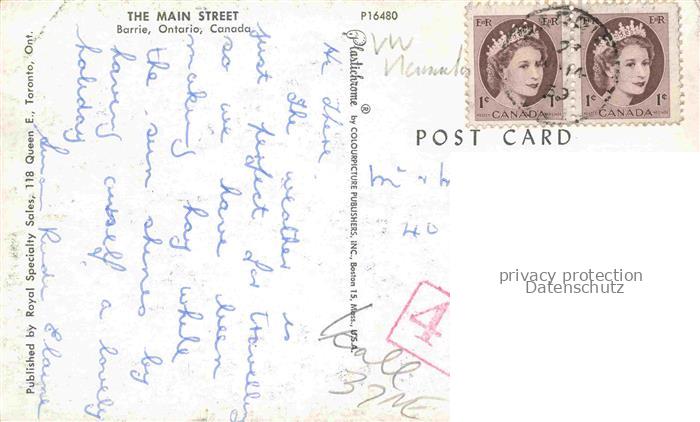 THE MAIN STREET
Barrie, Ontario, Canada
P16480
Published by Royal Specialty Sales, 118 Queen E., Toronto, Ont.
Plastichrome ® by COLOURPICTURE PUBLISHERS, INC., Boston 15, Mass., U.S.A.
Hi there.
the weather is
just perfect for travelling
so we have been
making hay while
the sun shines by
having ourself a lovely
holiday
Elaine
VW
E II R
CANADA
1¢
1¢
E II R
CANADA
1¢
1¢
POST CARD
40
4
privacy protection
Datenschutz